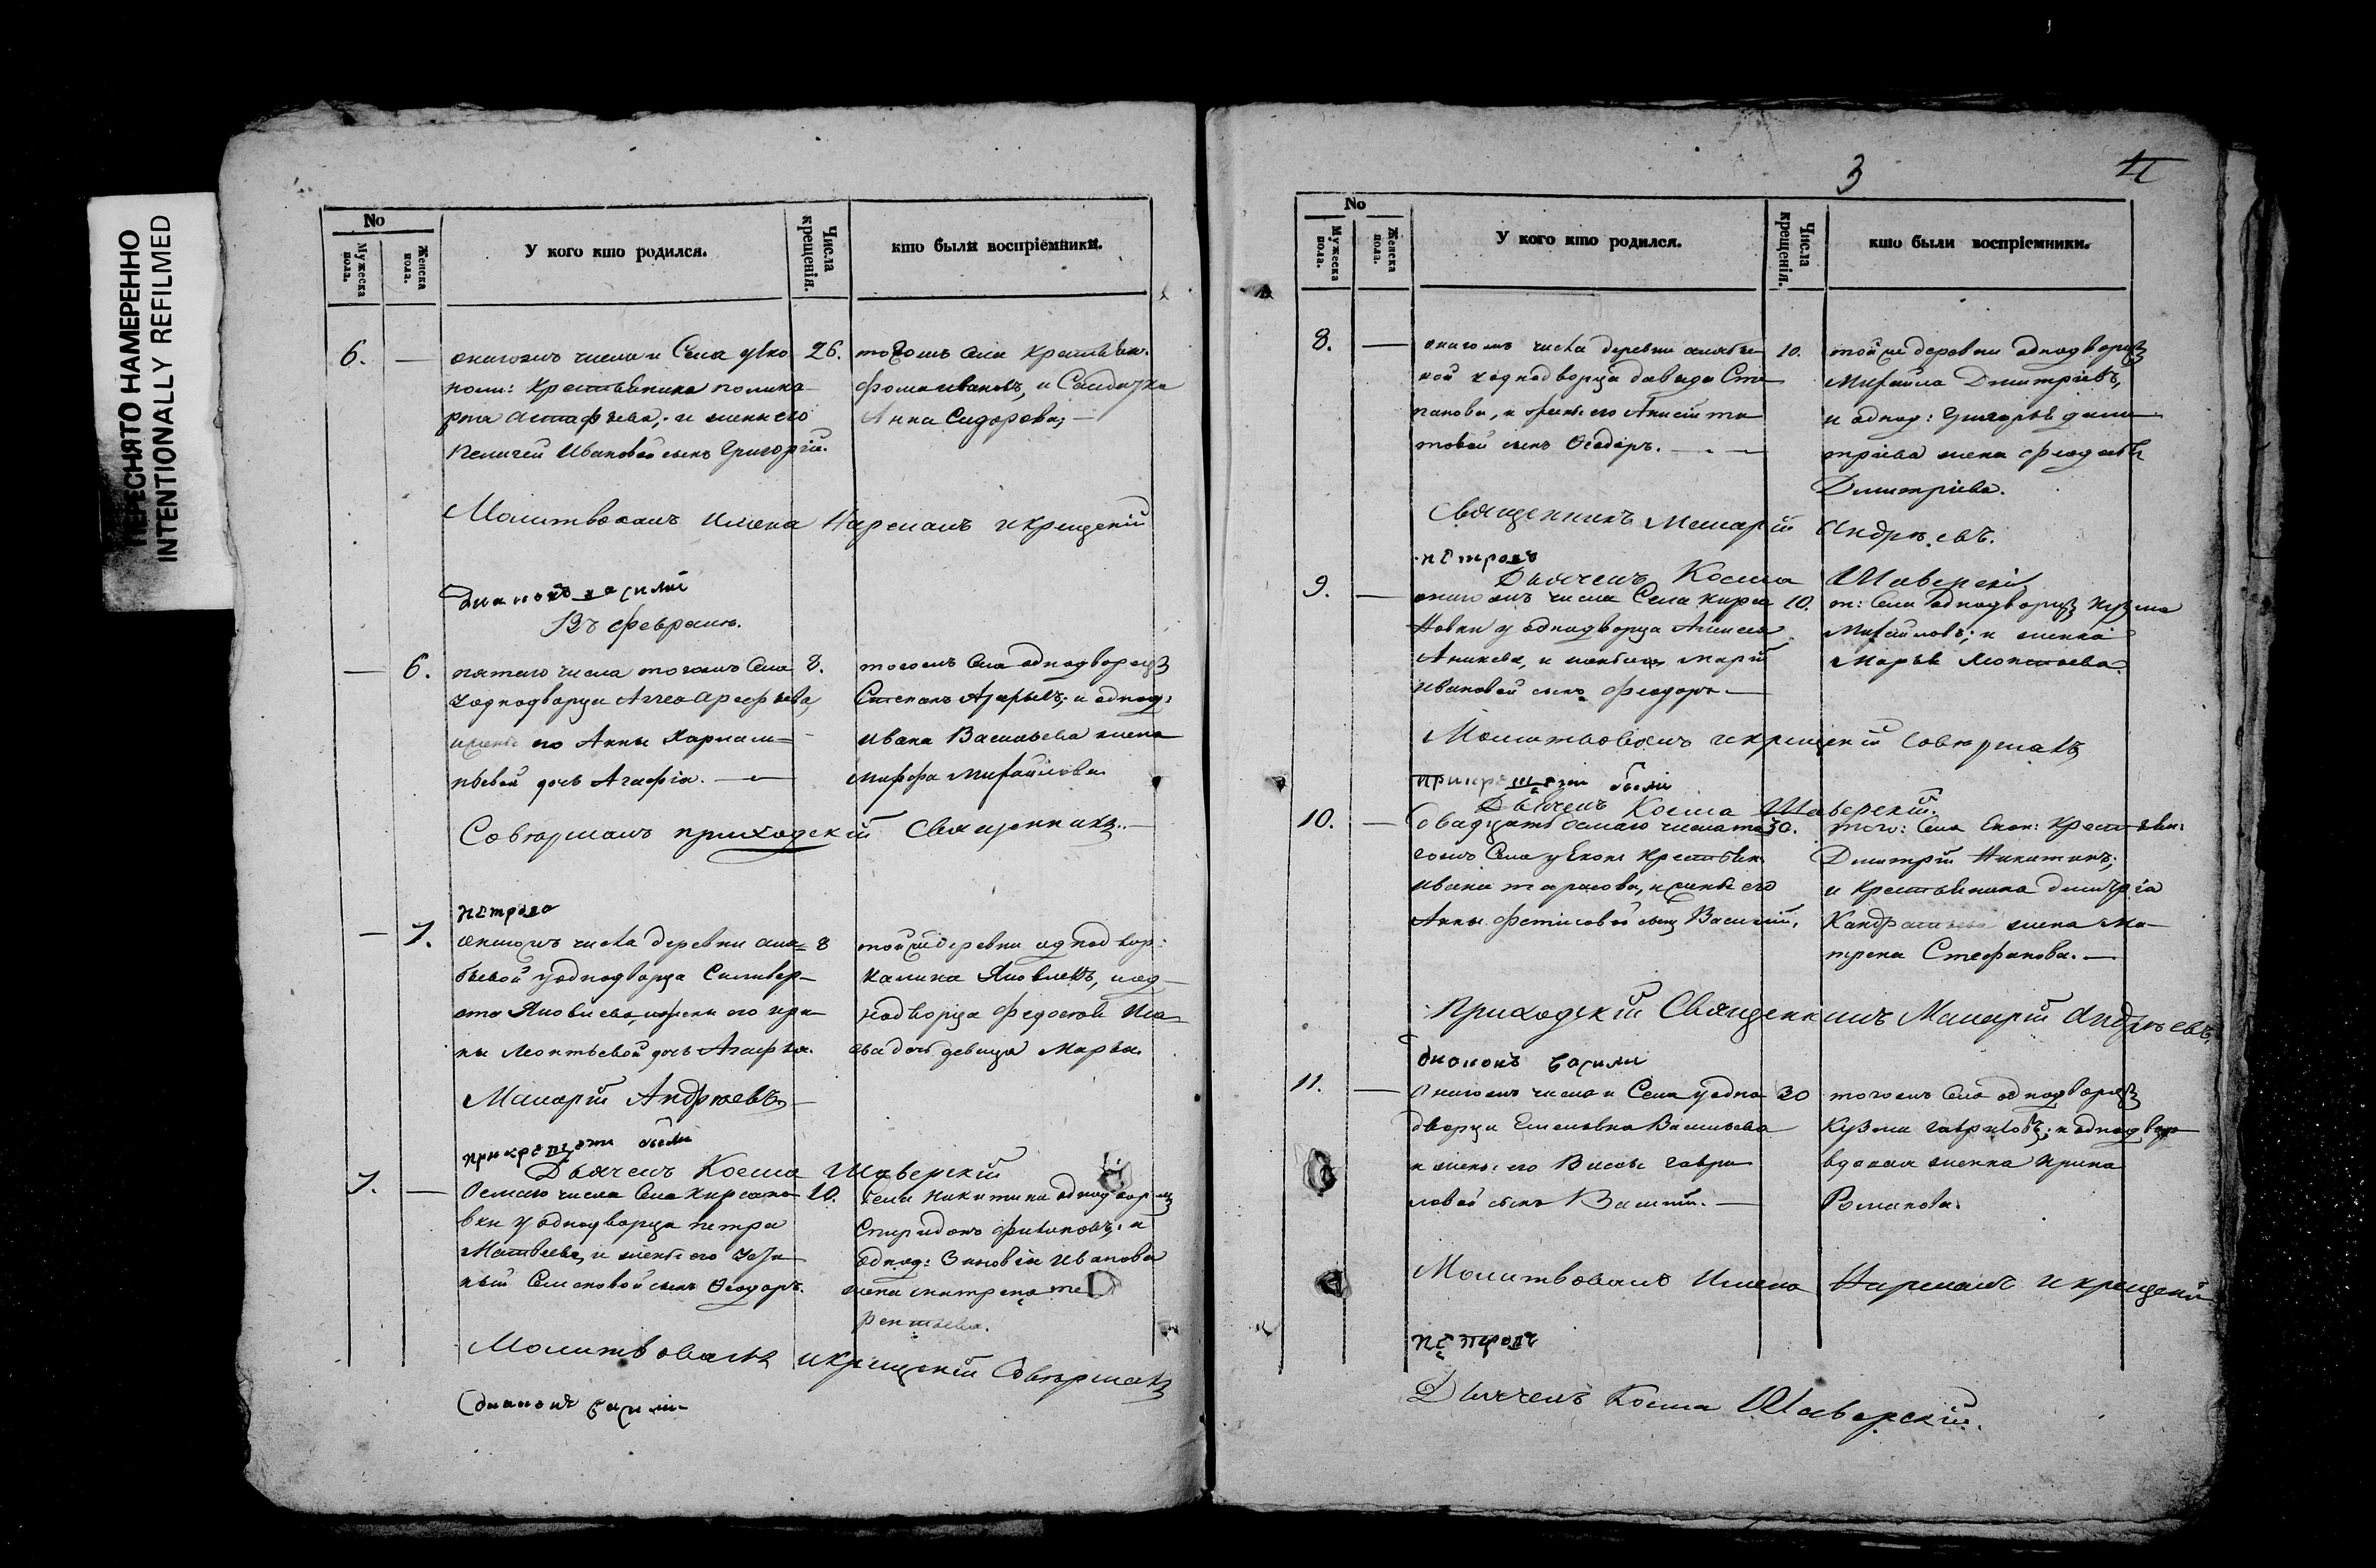 ПЕРЕСНЯТО НАМЕРЕННО
INTENTIONALLY REFILMED
No
Мужеска пола.
Женска пола.
У кого кто родился.
Числа крещенія.
кто были воспріемники.
6.
—
онагожъ числа и Села у Еко
ном: Крестьянина полика
рпа Астафьева, и жены его
Ивановой сынъ Григорій.
26.
тогожъ Села Крестьян:
фома ивановъ, и Салдатка
Анна Сидорова;
Молитвовалъ имена Нарекалъ и крещеній
диаконъ васили
Въ февралѣ.
—
6.
пятаго числа тогожъ Села
у однодворца Аггеа Арефьева,
и жены его Анны Харлам=
пьевой дочь Агафіа.
8.
тогожъ Села однодворецъ
Степанъ и однод:
ивана Васильева жена
марфа михайлова
Совершалъ приходскій Священникъ.
петровъ
—
7.
онагожъ числа деревни
у однодворца Силивер-
ста Яковлева, и жены его ири-
ны леонтьевой дочь Агафья.
8
тойже деревни однодвор:
калина Яковлевъ, и од-
нодворца
дочь девица Марья.
Макарій Андреевъ
при крещени были
Дьячекъ Косма Шаверскій
7.
—
Осмаго числа Села кирсано
вки у однодворца петра
Матвеева, и жены его
Семеновой сынъ Ѳеодоръ.
10.
Села никитина однодворец
Спиридонъ филиповъ, и
однод: Зиновіа иванова
жена матрена те
рентьева.
Молитвовалъ и крещеній Совершалъ
диаконъ васили
3
No
Мужеска пола.
Женска пола.
У кого кто родился.
Числа крещенія.
кто были воспріемники.
8.
—
онагожъ числа деревни
у однодворца давыда Сте
панова, и жены его
сынъ Ѳеодоръ.
10.
тойже деревни однодворецъ
Михайла Дмитріевъ,
и однод: Григорья дми
тріева жена
Дмитріева.
Священникъ Макарій Андреевъ.
петровъ
Дьячекъ Косма Шаверскій
9.
—
онагожъ числа Села кирса
новки у однодворца Алексея
Аникева, и жены его марьи
ивановой сынъ феодоръ
10.
т: Села однодворецъ кузма
михайловъ; и женка
марья леонтьева
Молитвовалъ и крещеній Совершалъ
при крещени были
Дьячекъ Косма Шаверскій.
10.
—
Двадцать осмаго числа то
гожъ Села у Екон: крестьян
ивана тарасова, и жены его
Анны фетисовой сынъ Василій.
30.
того: Села Екон: Крестьян:
Дмитрій Никитинъ;
и крестьянина дмитріа
жена ма-
трена Стефанова.
Приходскій Священникъ Макарій Андреевъ.
диаконъ васили
11.
—
Онагожъ числа и Села у одно
дворца Емельяна Васильева
и жены его гаври
ловой сынъ Василій.
30
тогожъ Села однодворецъ
Кузма гавриловъ; и однодвор
вдовая женка ирина
Романова.
Молитвовалъ Имена Нарекалъ и крещеній
петровъ
Дьячекъ Косма Шаверскій.